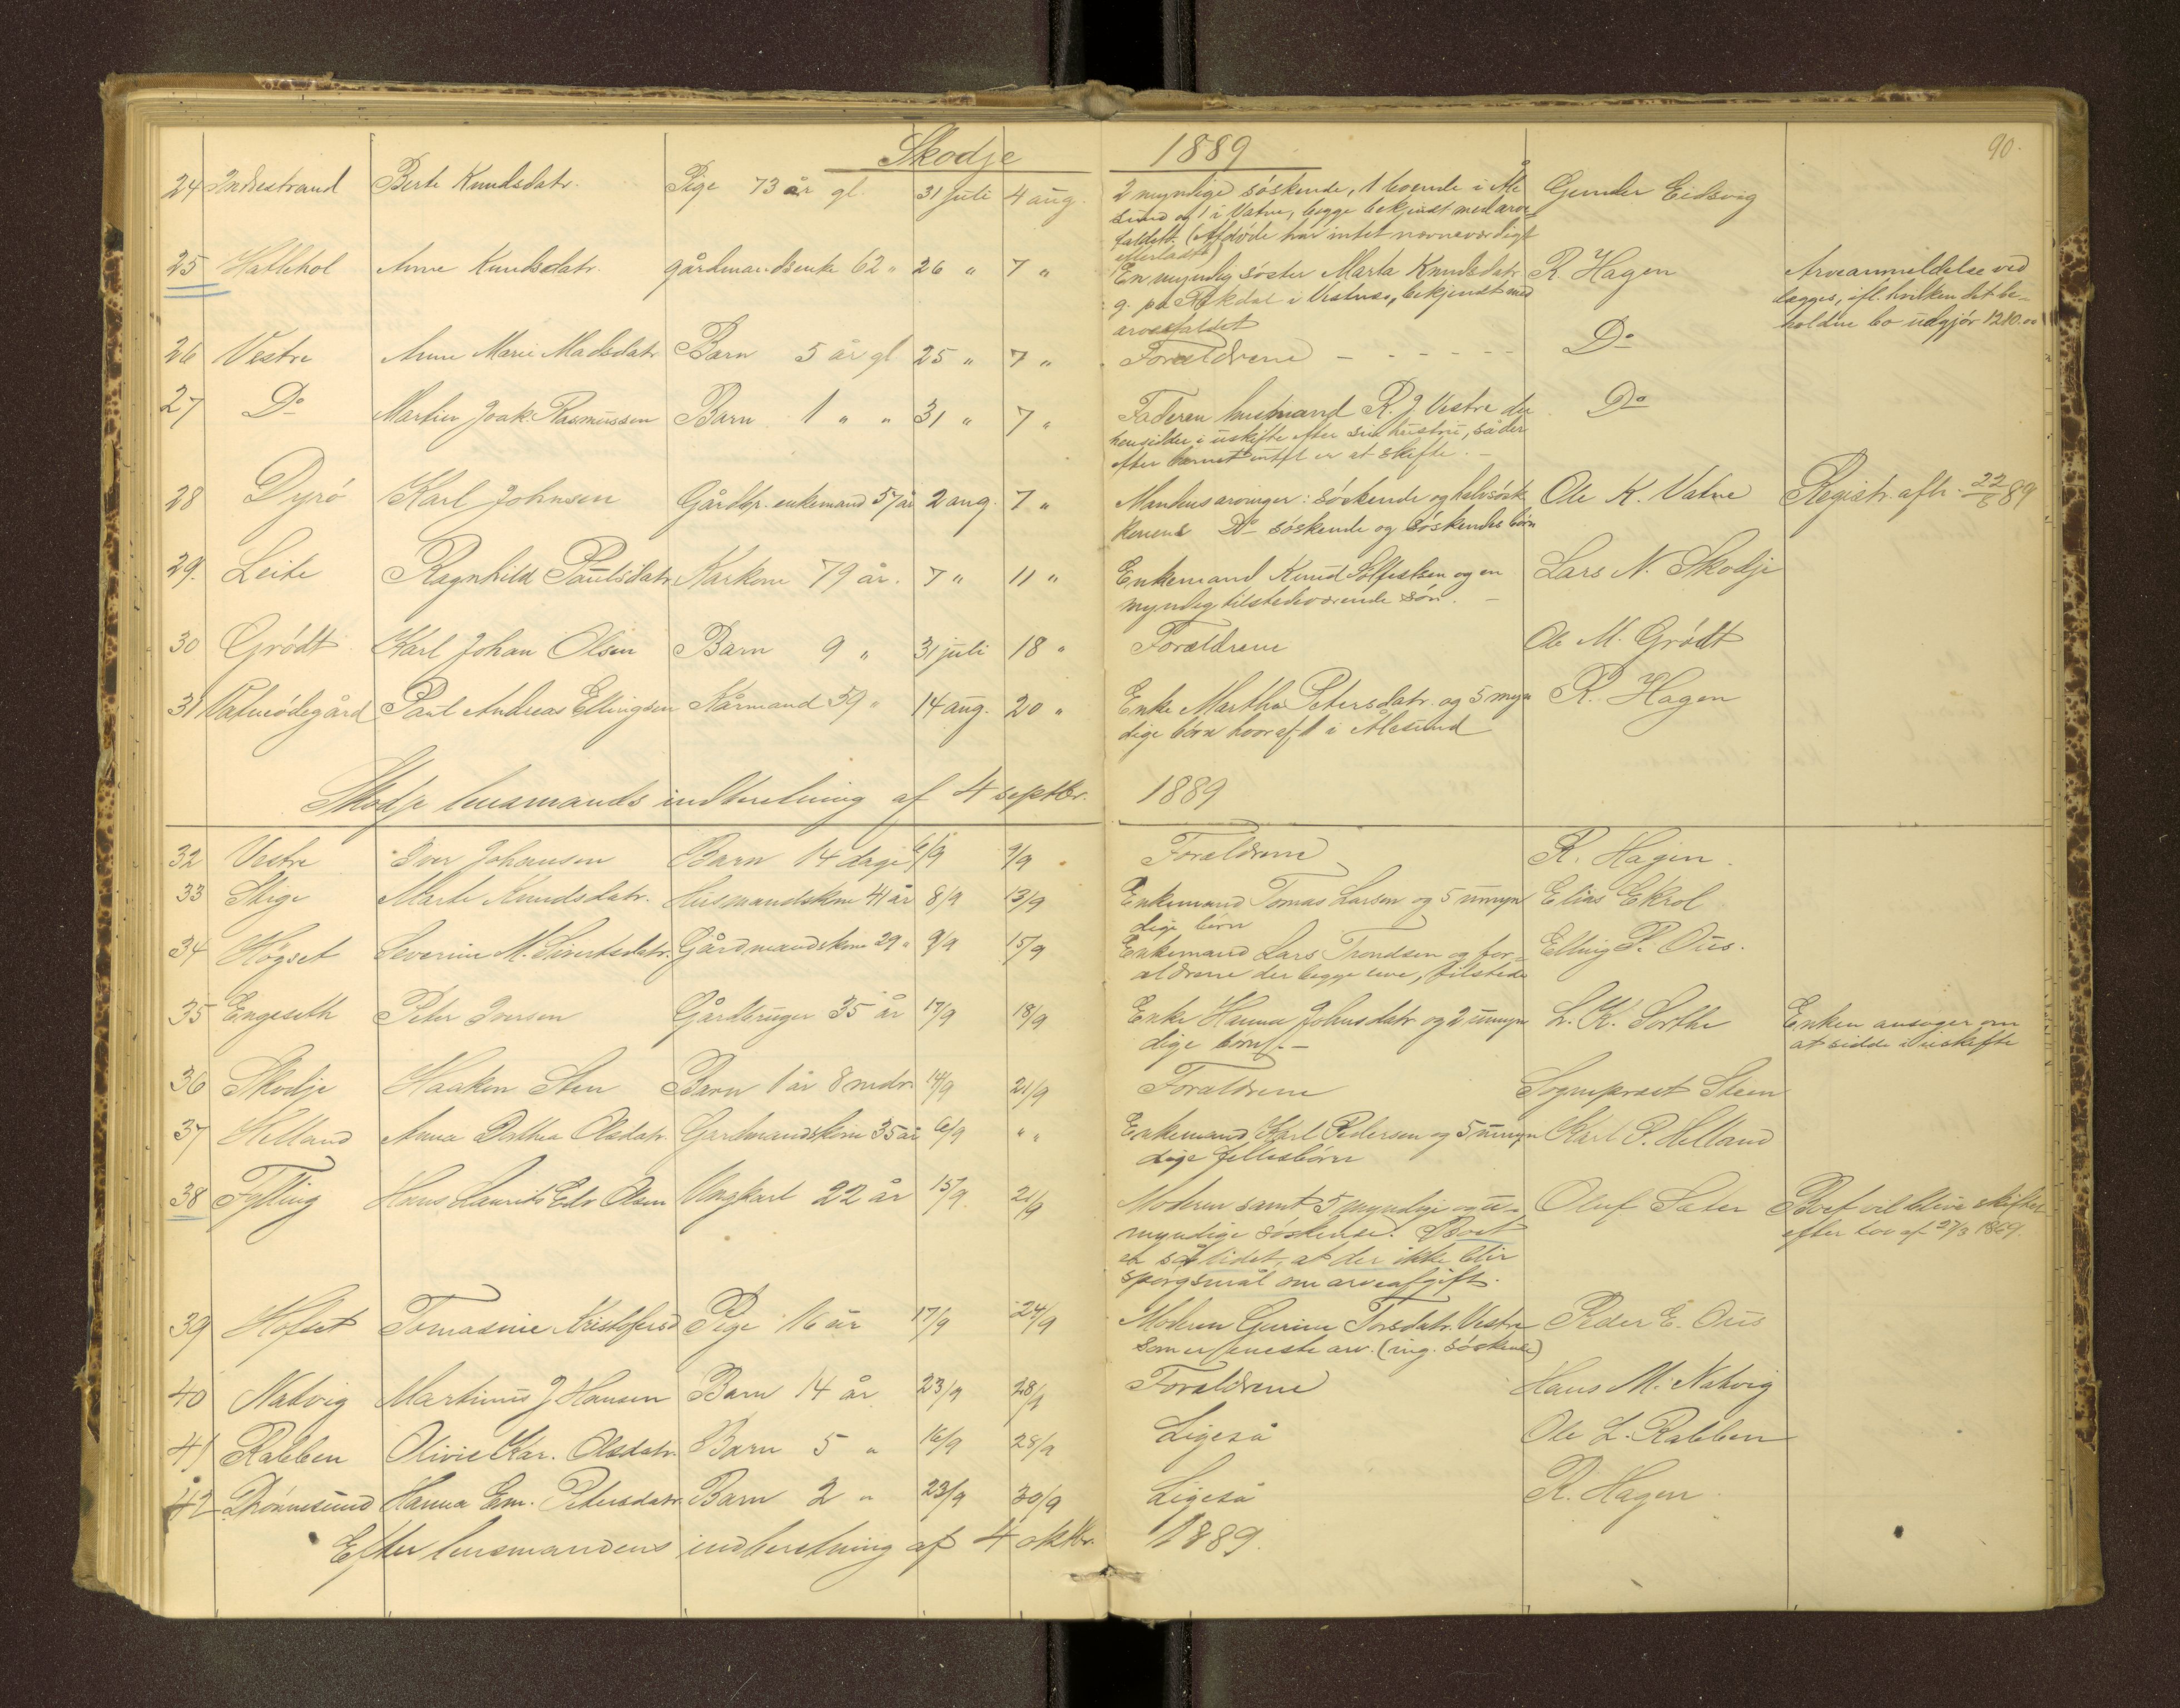 Skodje 1889
90.
24 Indrestrand Berte Knudsdatr. Pige 73 år gl. 31 juli 4 aug. 2 myndige søskende, 1 boende i Åle Gunder Eidsvig
sund og 1 i Vatne, begge bekjendt med arve
faldet. (Afdøde har intet nævneværdigt
efterladt)
25 Hattehol Anne Knudsdatr. gårdmandsenke 62 " 26 " 7 " En myndig søster Marta Knudsdatr R. Hagen Arveanmeldelse ved
g. på i Vestnes, bekjendt med lægges, ifl. hvilken det be-
arvefaldet holdne bo udgjør 1210.00
26 Vestre Anne Marie Madsdatr Barn 5 år gl 25 " 7 " Forældrene - - - - - - Do
27 Do Martin Joak. Rasmussen Barn 1 " " 31 " 7 " Faderen husmand R. J. Vestre der Do
hensidder i uskifte efter sin hustru, så der
efter barnet intet er at skifte. -
28 Dyrø Karl Johnsen Gårdbr. enkemand 57 år 2 aug. 7 " Mandens arvinger: søskende og halvsøsk Ole K. Vatne Registr. afh. 22/8 89
Konens Do søskende og søskendes børn
29. Leite Ragnhild Paulsdatr Kårkone 79 år. 7 " 11 " Enkemand Knud Solfestsen og en Lars N. Skodje
myndig tilstedeværende søn. -
30 Grødt Karl Johan Olsen Barn 9 " 31 juli 18 " Forældrene Ole M. Grødt
31 Vatneødegård Paul Andreas Ellingsen Kårmand 59 " 14 aug. 20 " Enke Martha Petersdatr. og 5 myn R. Hagen
dige børn hvoraf 1 i Ålesund
Skodje lensmands indberetning af 4 septbr. 1889
32 Vestre Iver Johansen Barn 14 dage 6/9 9/9 Forældrene R. Hagen.
33 Skige Marte Knudsdatr. Husmandskone 41 år 8/9 13/9 Enkemand Tomas Larsen og 5 umyn Elias Ekrol
dige børn
34 Høgset Severine M. Sivertsdatr. Gårdmandskone 29 " 9/9 15/9 Enkemand Lars Trondsen og for- Elling P. Ous.
ældrene der begge leve, tilstede
35 Engeseth Peter Iversen Gårdbruger 35 år 17/9 18/9 Enke Hanna Johnsdatr og 2 umyn L. K. Sorthe Enken ansøger om
dige børn. - at sidde i uskifte
36 Skodje Haakon Sten Barn 1 år 8 mdr. 14/9 21/9 Forældrene Sogneprest Steen
37 Helland Anna Dorthea Olsdatr. Gardmandskone 35 år 6/9 " " Enkemand Karl Pedersen og 5 umyn Karl P. Helland
dige fellesbørn
38 Fylling Hans Laurits Edv Olsen Ungkarl 22 år 15/9 21/9 Moderen samt 5 myndige og u- Oluf Sæter Boet vil blive skiftet
myndige søskende. Boet efter lov af 27/3 1869.
er så lidet, at der ikke blir
spørgsmål om arveafgift.
39 Hofset Tomasine Kristofersd Pige 16 år 17/9 24/9 Moderen Gurine Torsdatr. Vestre Peder E. Ous
som er eneste arv. (ing. søskende)
40 Natvig Martinus J Hansen Barn 14 år 23/9 28/9 Forældrene Hans M. Natvig
41 Rabben Olivie Kar. Olsdatr. Barn 5 " 16/9 28/9 Ligeså Ole L. Rabben
42 Drønnesund Hanna Em. Petersdatr. Barn 2 " 23/9 30/9 Ligeså R. Hagen.
Efter lensmandens indberetning af 4 oktbr. 1889.